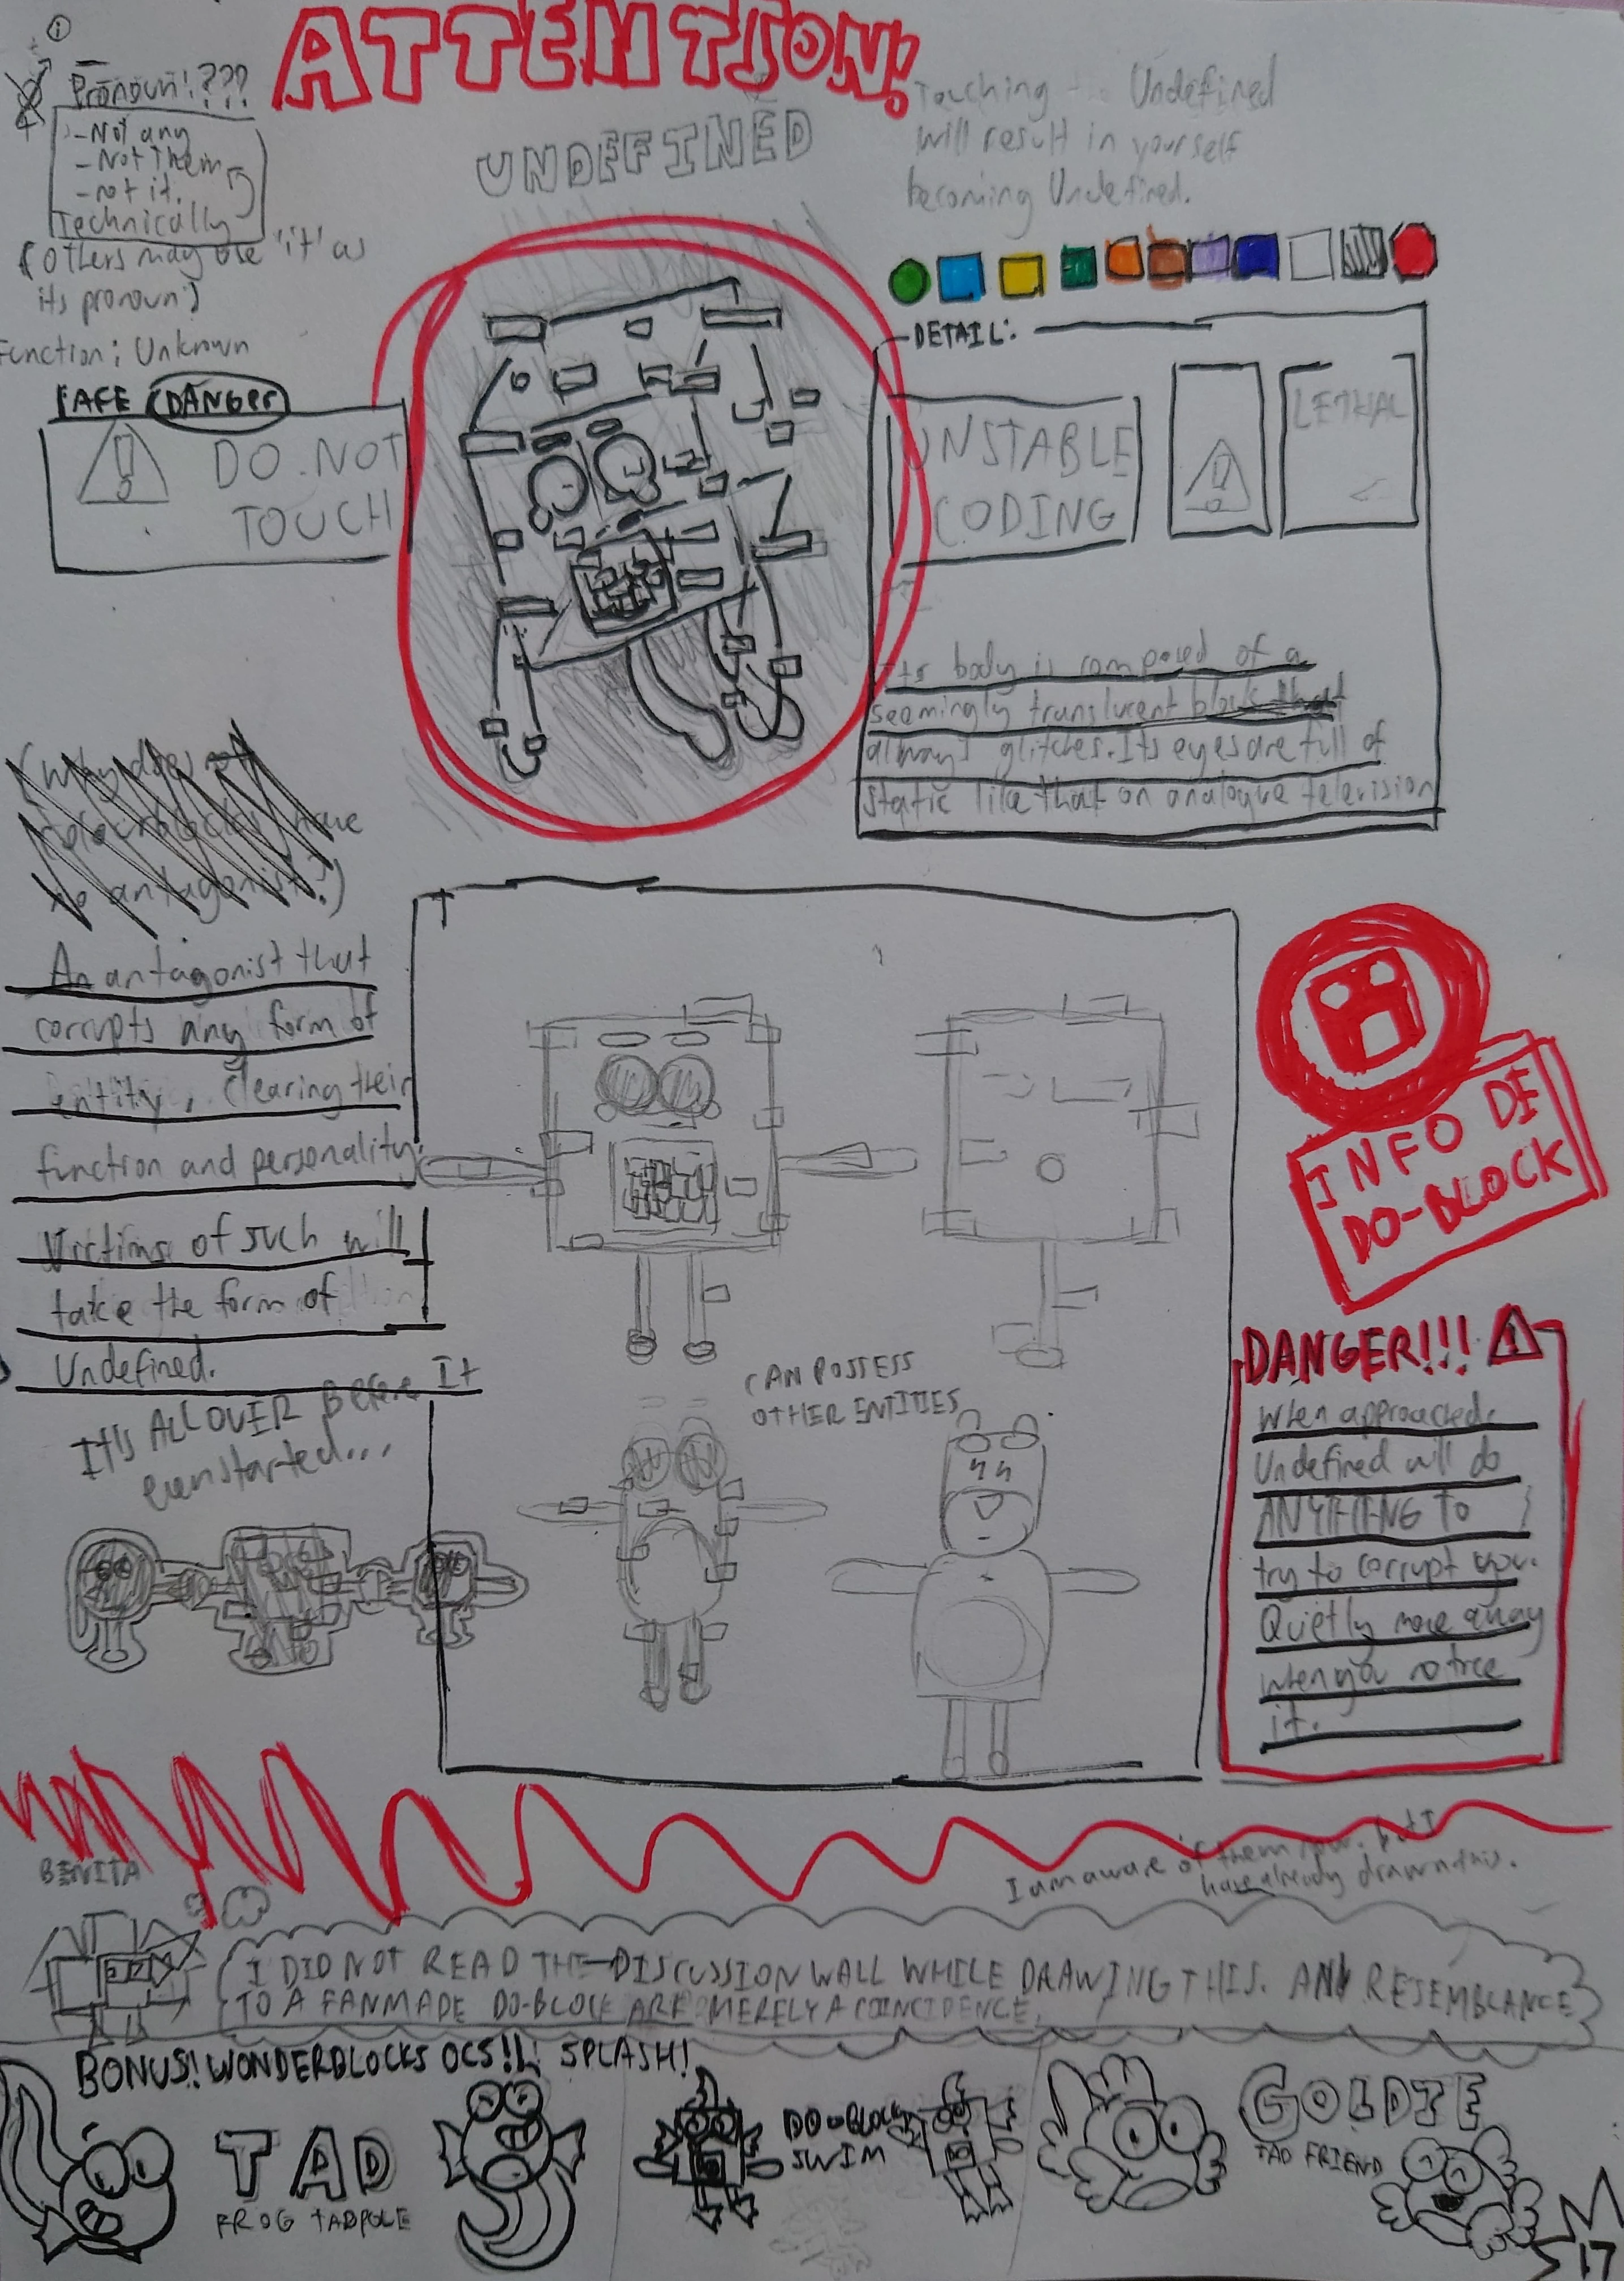 ATTENTION!
UNDEFINED
Pronoun!???
-Not any
-Not Them
-not it.
Technically
(others may use 'it' as
its pronoun)
Function: Unknown
SAFE DANGER
DO NOT
TOUCH
Touching Undefined
will result in yourself
becoming Undefined.
DETAIL:
UNSTABLE
CODING
LETHAL
Its body is composed of a
seemingly translucent block that
always glitches. Its eyes are full of
static like that on analogue television
(Why does
colourblocks have
no antagonist?)
An antagonist that
corrupts any form of
entity, clearing their
function and personality.
Victims of such will
take the form of
Undefined.
IT'S ALL OVER BEFORE IT
even started...
CAN POSSESS
OTHER ENTITIES
INFO OF
DO-BLOCK
DANGER!!!
When approached,
Undefined will do
ANYTHING TO
try to corrupt you.
Quietly move away
when you notice
it.
BENITA
I am aware of them now, but I
have already drawn this.
I DID NOT READ THE DISCUSSION WALL WHILE DRAWING THIS. ANY RESEMBLANCE
TO A FANMADE DO-BLOCK ARE MERELY A COINCIDENCE.
BONUS! WONDERBLOCKS OCS!! SPLASH!
TAD
FROG TADPOLE
DO-BLOCK
SWIM
GOLDIE
TAD FRIEND
17